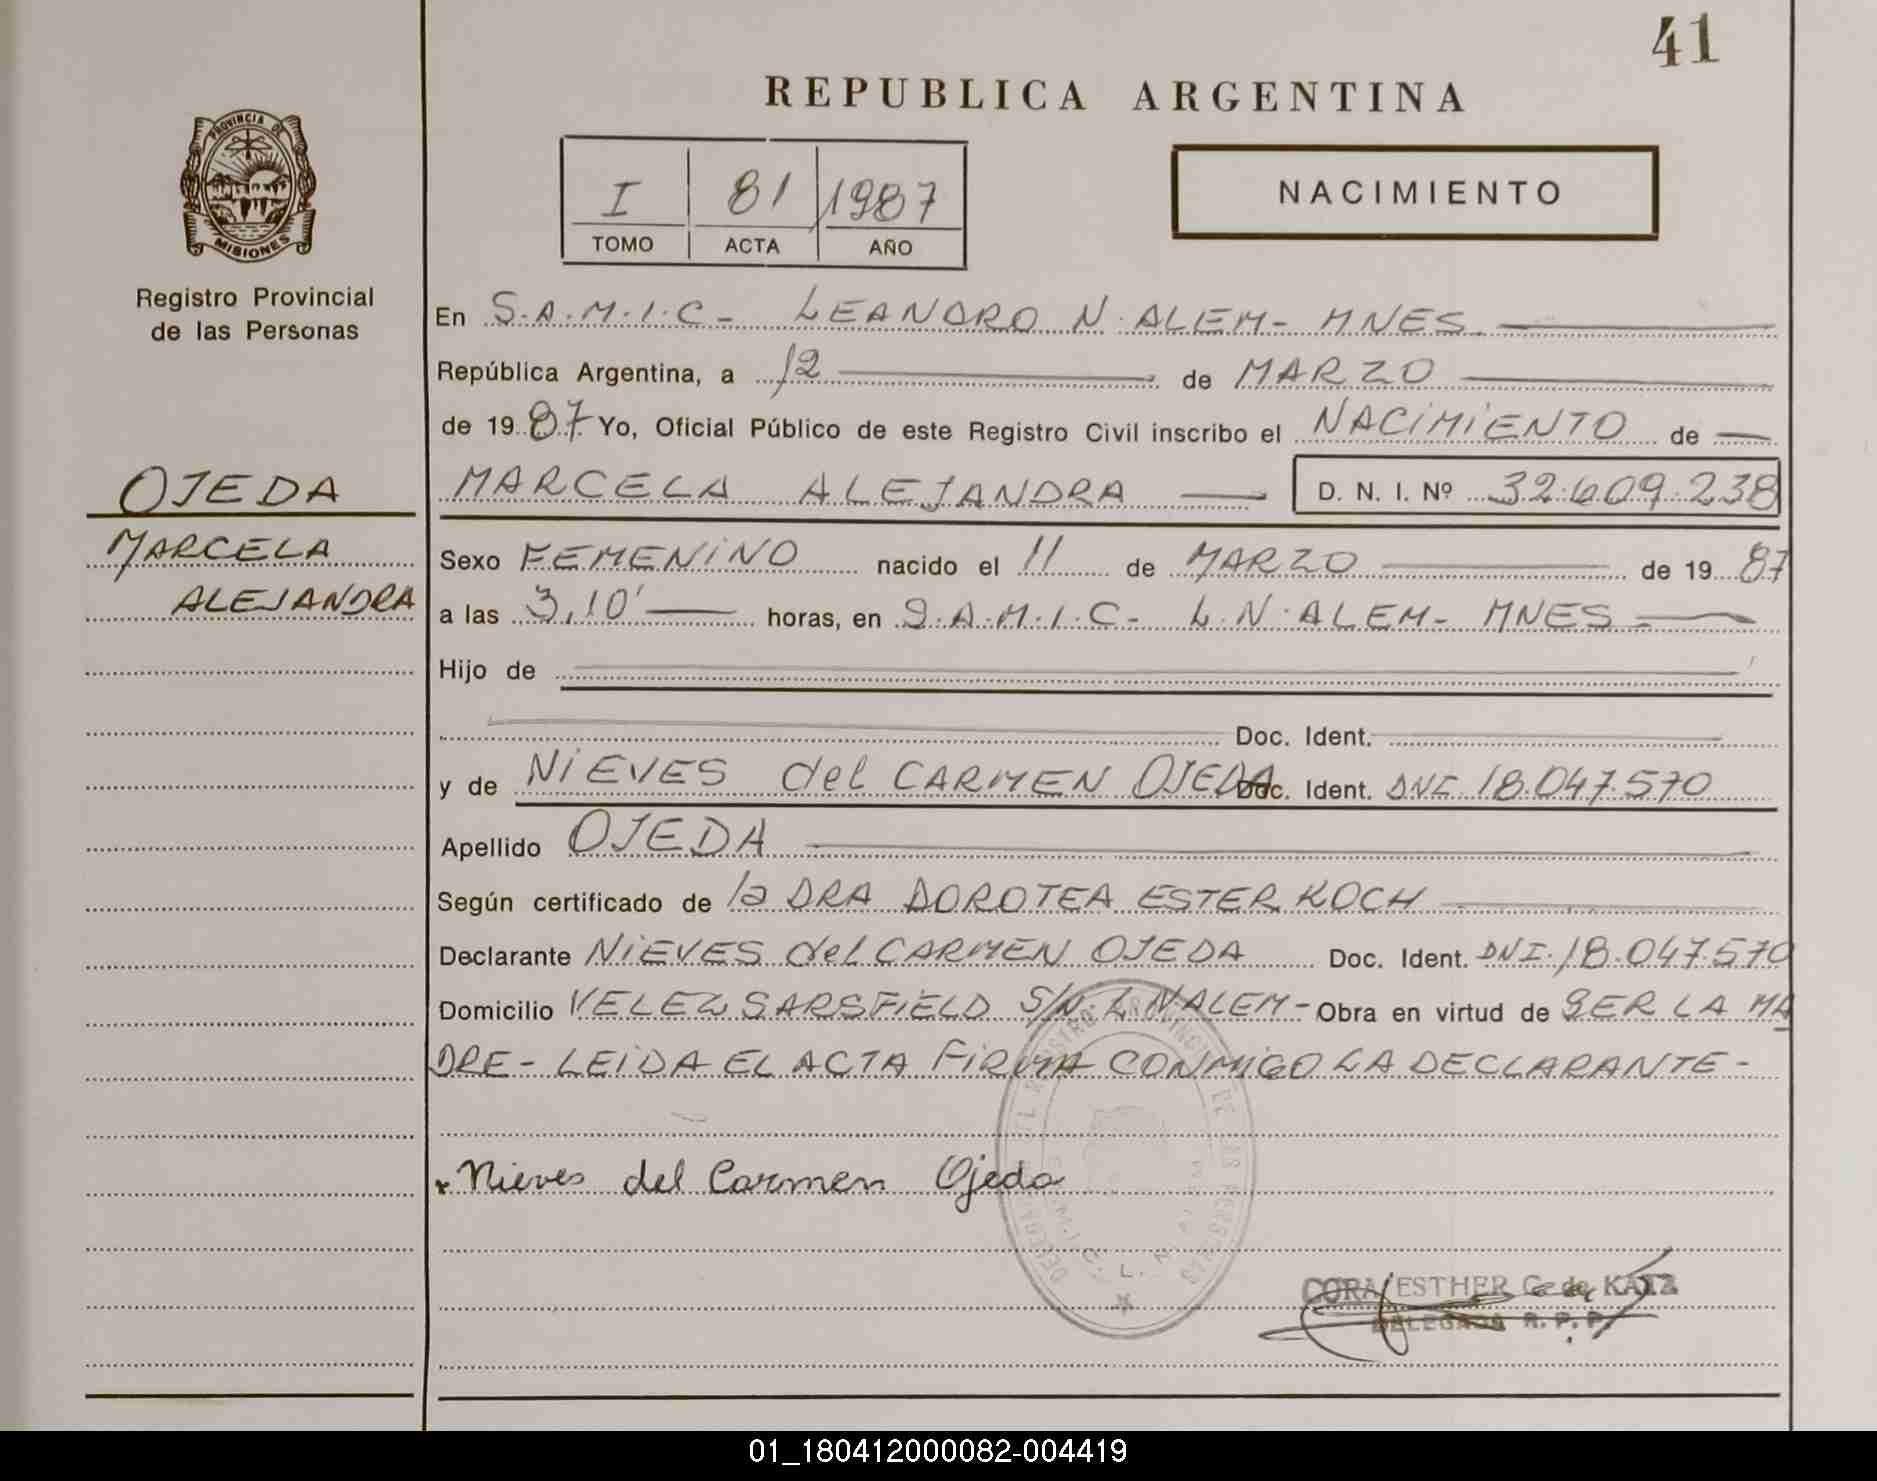 41
REPUBLICA ARGENTINA
PROVINCIA DE
MISIONES
Registro Provincial
de las Personas
I 81 1987
TOMO ACTA AÑO
NACIMIENTO
En S.A.M.I.C- LEANDRO N. ALEM- MNES
República Argentina, a 12 de MARZO
de 1987 Yo, Oficial Público de este Registro Civil inscribo el NACIMIENTO de
OJEDA
MARCELA
ALEJANDRA
MARCELA ALEJANDRA D. N. I. Nº 32.609.238
Sexo FEMENINO nacido el 11 de MARZO de 1987
a las 3,10' horas, en S.A.M.I.C- L.N. ALEM- MNES
Hijo de
Doc. Ident.
y de NIEVES del CARMEN OJEDA Doc. Ident. DNI 18.047.570
Apellido OJEDA
Según certificado de la DRA DOROTEA ESTER KOCH
Declarante NIEVES del CARMEN OJEDA Doc. Ident. DNI. 18.047.570
Domicilio VELEZ SARSFIELD S/N. L.N.ALEM- Obra en virtud de SER LA MA
DRE- LEIDA EL ACTA FIRMA CONMIGO LA DECLARANTE-
Nieves del Carmen Ojeda
CORA ESTHER G. de KATZ
DELEGADA R. P. P.
01_180412000082-004419